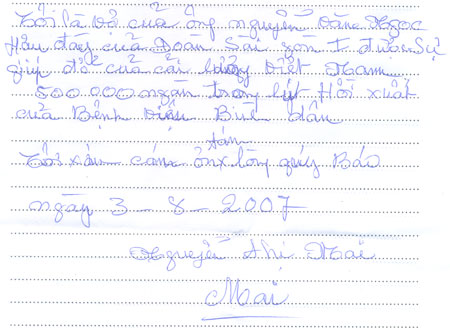 Tôi là vợ của ông nguyễn Văn Ngọc
Hậu đài của Đoàn Sài gòn I được sự
giúp đỡ của cải lương Việt Nam
500.000 ngàn trong lúc Hồi xuất
của Bệnh Viện Bình dân
Tôi xin cám ơn tấm lòng quý Báo
ngày 3 - 8 - 2007
Nguyễn thi Mai
Mai